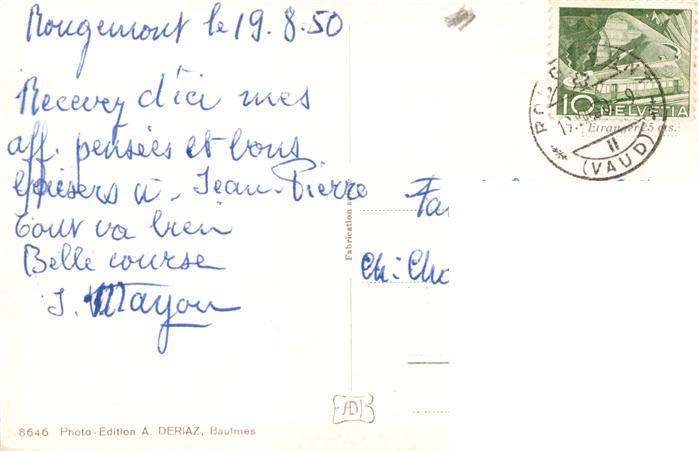 Rougemont le 19.8.50
Recevez d'ici mes
aff. pensées et bons
baisers à Jean-Pierre
Tout va bien
Belle course
J. Mayou
Fa
Ch: Cha
Fabrication
10 HELVETIA
Etranger 25 cts.
II
(VAUD)
8646 Photo-Edition A. DERIAZ, Baulmes